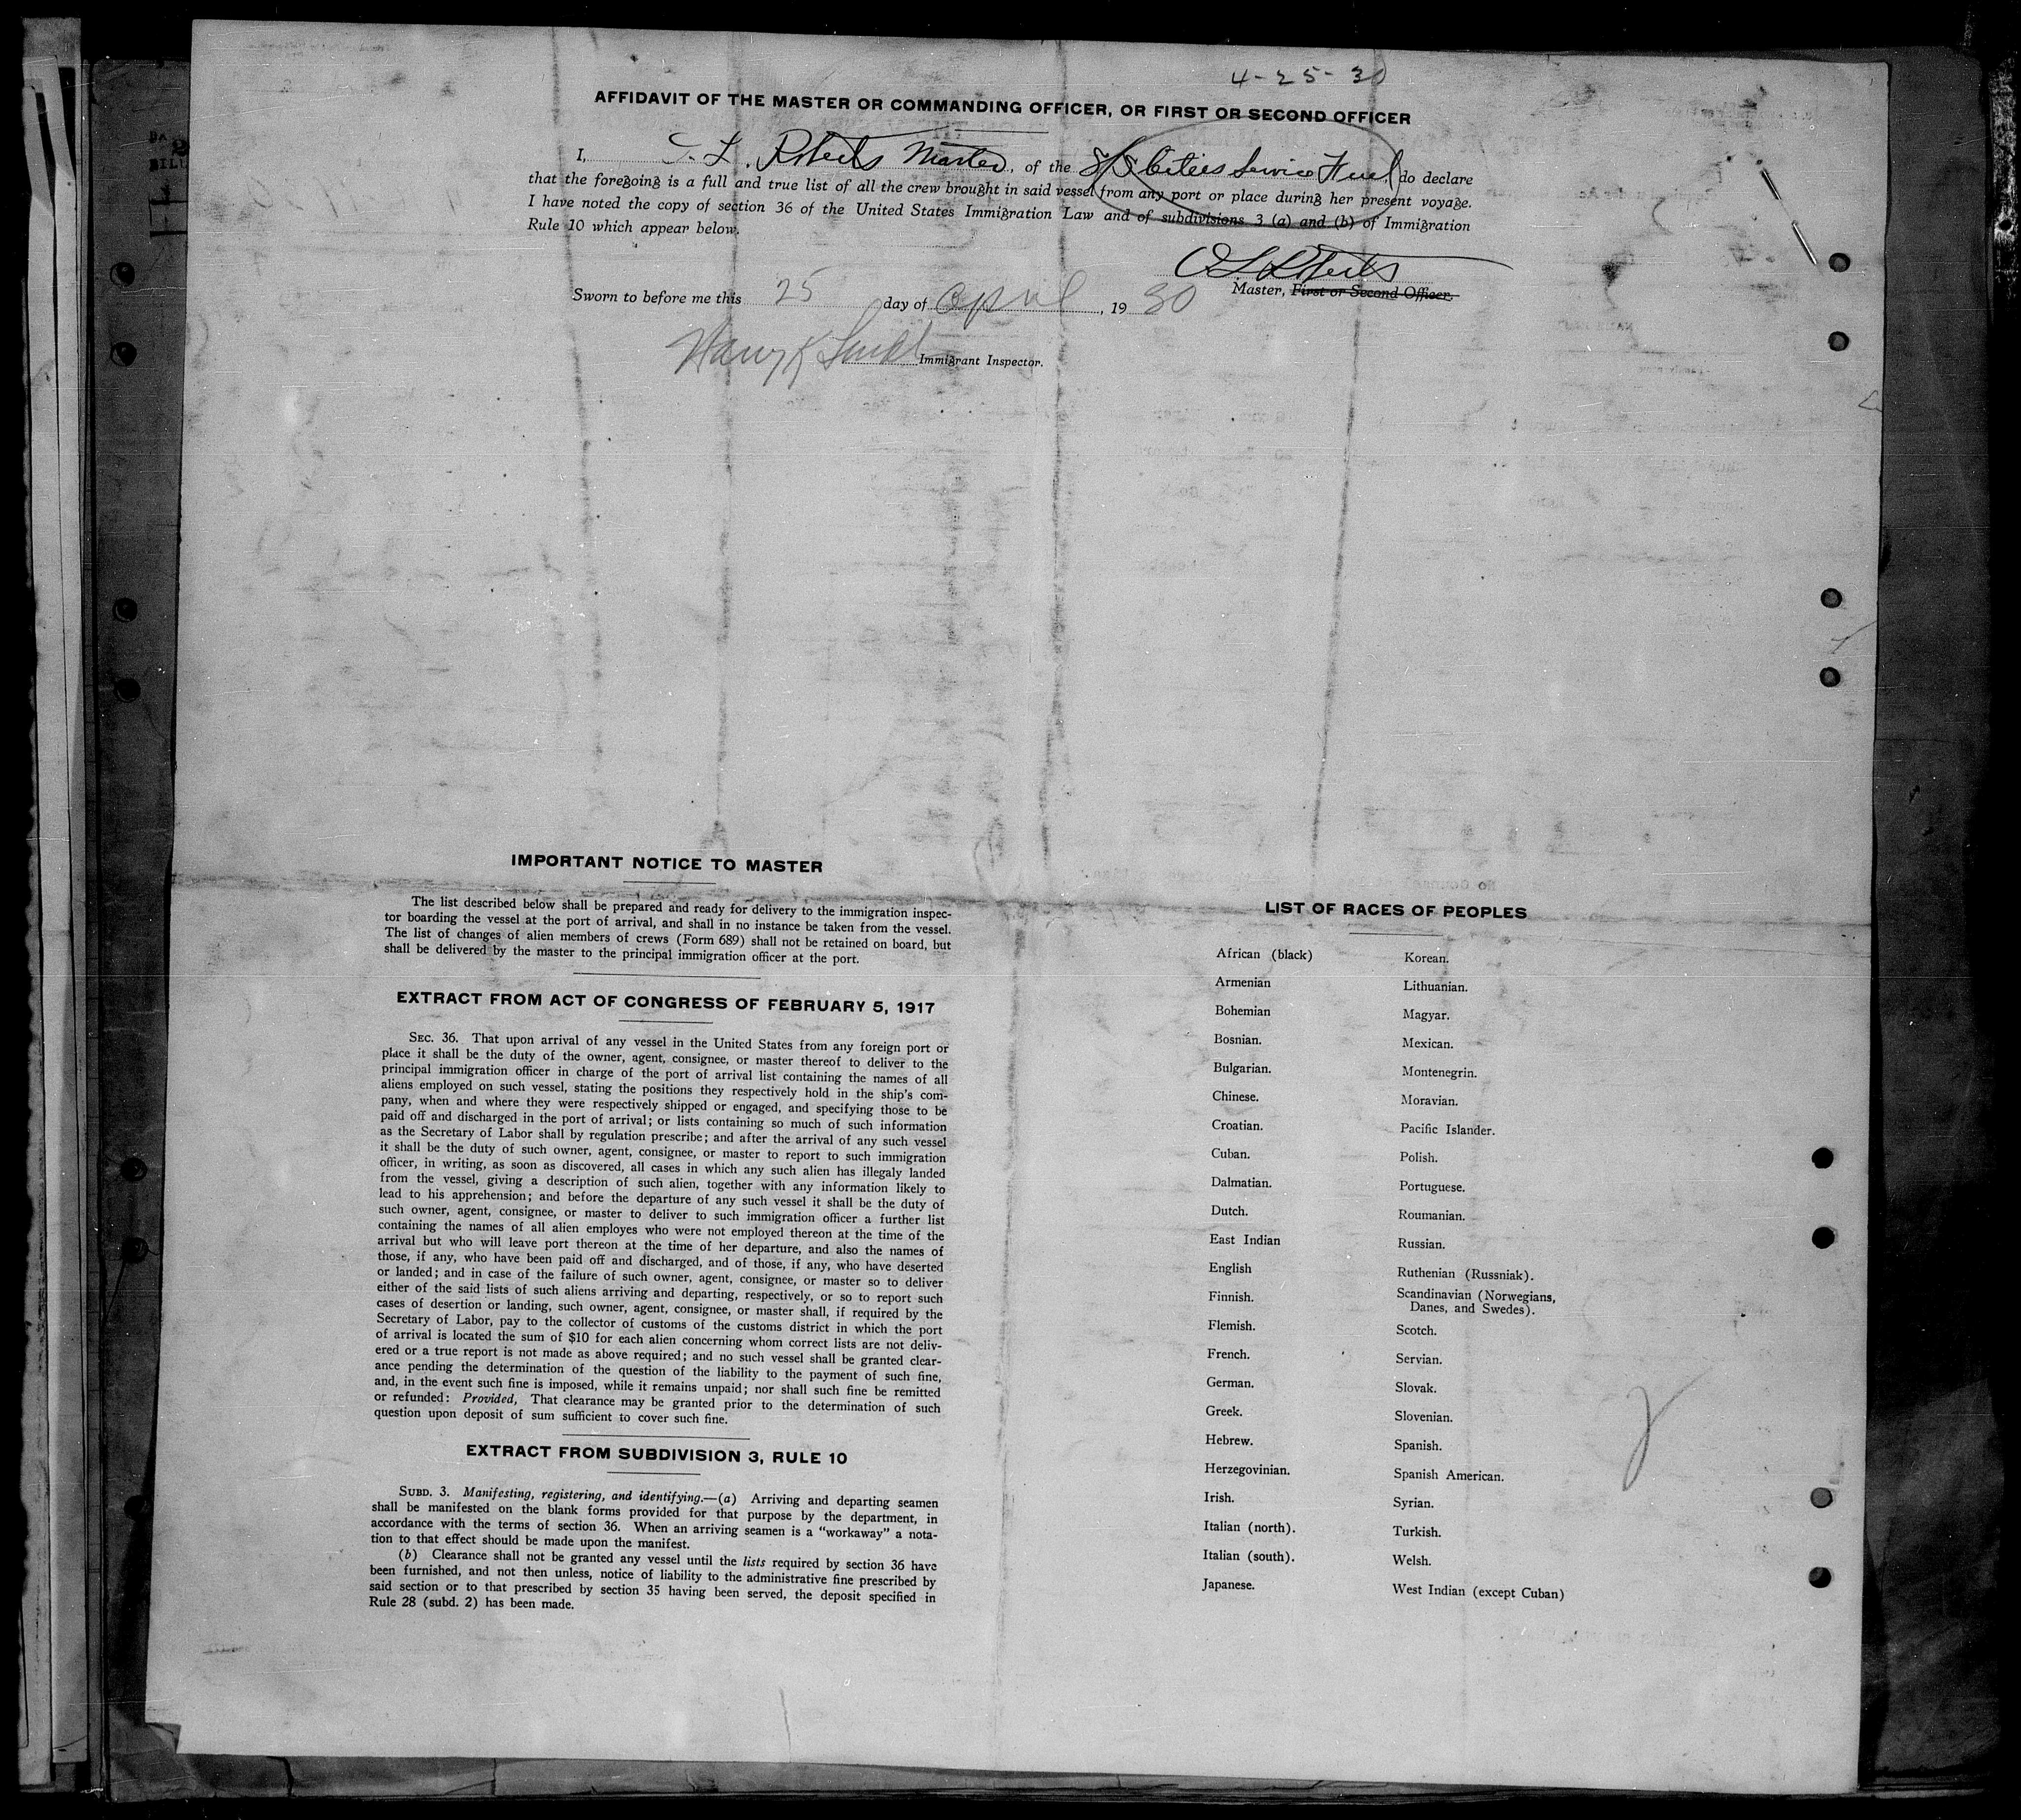 4-25-30
AFFIDAVIT OF THE MASTER OR COMMANDING OFFICER, OR FIRST OR SECOND OFFICER
I, L. Roberts Master, of the S/S Cities Service Fuel, do declare
that the foregoing is a full and true list of all the crew brought in said vessel from any port or place during her present voyage.
I have noted the copy of section 36 of the United States Immigration Law and of subdivisions 3 (a) and (b) of Immigration
Rule 10 which appear below.
L Roberts
Master, First or Second Officer.
Sworn to before me this 25 day of April, 1930
Harry K Immigrant Inspector.
IMPORTANT NOTICE TO MASTER
The list described below shall be prepared and ready for delivery to the immigration inspec-
tor boarding the vessel at the port of arrival, and shall in no instance be taken from the vessel.
The list of changes of alien members of crews (Form 689) shall not be retained on board, but
shall be delivered by the master to the principal immigration officer at the port.
EXTRACT FROM ACT OF CONGRESS OF FEBRUARY 5, 1917
SEC. 36. That upon arrival of any vessel in the United States from any foreign port or
place it shall be the duty of the owner, agent, consignee, or master thereof to deliver to the
principal immigration officer in charge of the port of arrival list containing the names of all
aliens employed on such vessel, stating the positions they respectively hold in the ship's com-
pany, when and where they were respectively shipped or engaged, and specifying those to be
paid off and discharged in the port of arrival; or lists containing so much of such information
as the Secretary of Labor shall by regulation prescribe; and after the arrival of any such vessel
it shall be the duty of such owner, agent, consignee, or master to report to such immigration
officer, in writing, as soon as discovered, all cases in which any such alien has illegaly landed
from the vessel, giving a description of such alien, together with any information likely to
lead to his apprehension; and before the departure of any such vessel it shall be the duty of
such owner, agent, consignee, or master to deliver to such immigration officer a further list
containing the names of all alien employes who were not employed thereon at the time of the
arrival but who will leave port thereon at the time of her departure, and also the names of
those, if any, who have been paid off and discharged, and of those, if any, who have deserted
or landed; and in case of the failure of such owner, agent, consignee, or master so to deliver
either of the said lists of such aliens arriving and departing, respectively, or so to report such
cases of desertion or landing, such owner, agent, consignee, or master shall, if required by the
Secretary of Labor, pay to the collector of customs of the customs district in which the port
of arrival is located the sum of $10 for each alien concerning whom correct lists are not deliv-
ered or a true report is not made as above required; and no such vessel shall be granted clear-
ance pending the determination of the question of the liability to the payment of such fine,
and, in the event such fine is imposed, while it remains unpaid; nor shall such fine be remitted
or refunded: Provided, That clearance may be granted prior to the determination of such
question upon deposit of sum sufficient to cover such fine.
EXTRACT FROM SUBDIVISION 3, RULE 10
SUBD. 3. Manifesting, registering, and identifying.—(a) Arriving and departing seamen
shall be manifested on the blank forms provided for that purpose by the department, in
accordance with the terms of section 36. When an arriving seamen is a "workaway" a nota-
tion to that effect should be made upon the manifest.
(b) Clearance shall not be granted any vessel until the lists required by section 36 have
been furnished, and not then unless, notice of liability to the administrative fine prescribed by
said section or to that prescribed by section 35 having been served, the deposit specified in
Rule 28 (subd. 2) has been made.
LIST OF RACES OF PEOPLES
African (black)
Armenian
Bohemian
Bosnian.
Bulgarian.
Chinese.
Croatian.
Cuban.
Dalmatian.
Dutch.
East Indian
English
Finnish.
Flemish.
French.
German.
Greek.
Hebrew.
Herzegovinian.
Irish.
Italian (north).
Italian (south).
Japanese.
Korean.
Lithuanian.
Magyar.
Mexican.
Montenegrin.
Moravian.
Pacific Islander.
Polish.
Portuguese.
Roumanian.
Russian.
Ruthenian (Russniak).
Scandinavian (Norwegians,
Danes, and Swedes).
Scotch.
Servian.
Slovak.
Slovenian.
Spanish.
Spanish American.
Syrian.
Turkish.
Welsh.
West Indian (except Cuban)